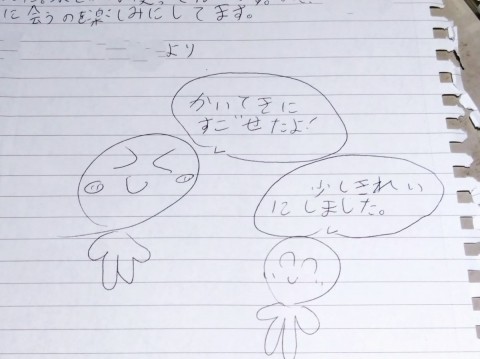 に会うのを楽しみにしてます。
より
かいてきに
すごせたよ!
少しきれい
にしました。